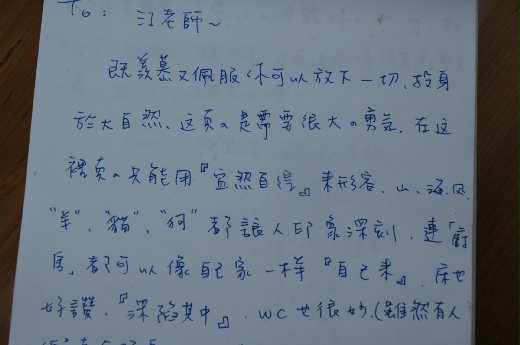 To: 江老師~
既羨慕又佩服你可以放下一切、投身
於大自然、这真の是需要很大の勇氣. 在这
裡真の只能用『宜然自得』來形容. 山、海、风、
"羊"、"貓"、"狗" 都讓人印象深刻. 連「廚
房」都可以像自己家一样『自己來』. 床也
好讚,『深陷其中』. WC也很妙.(雖然有人